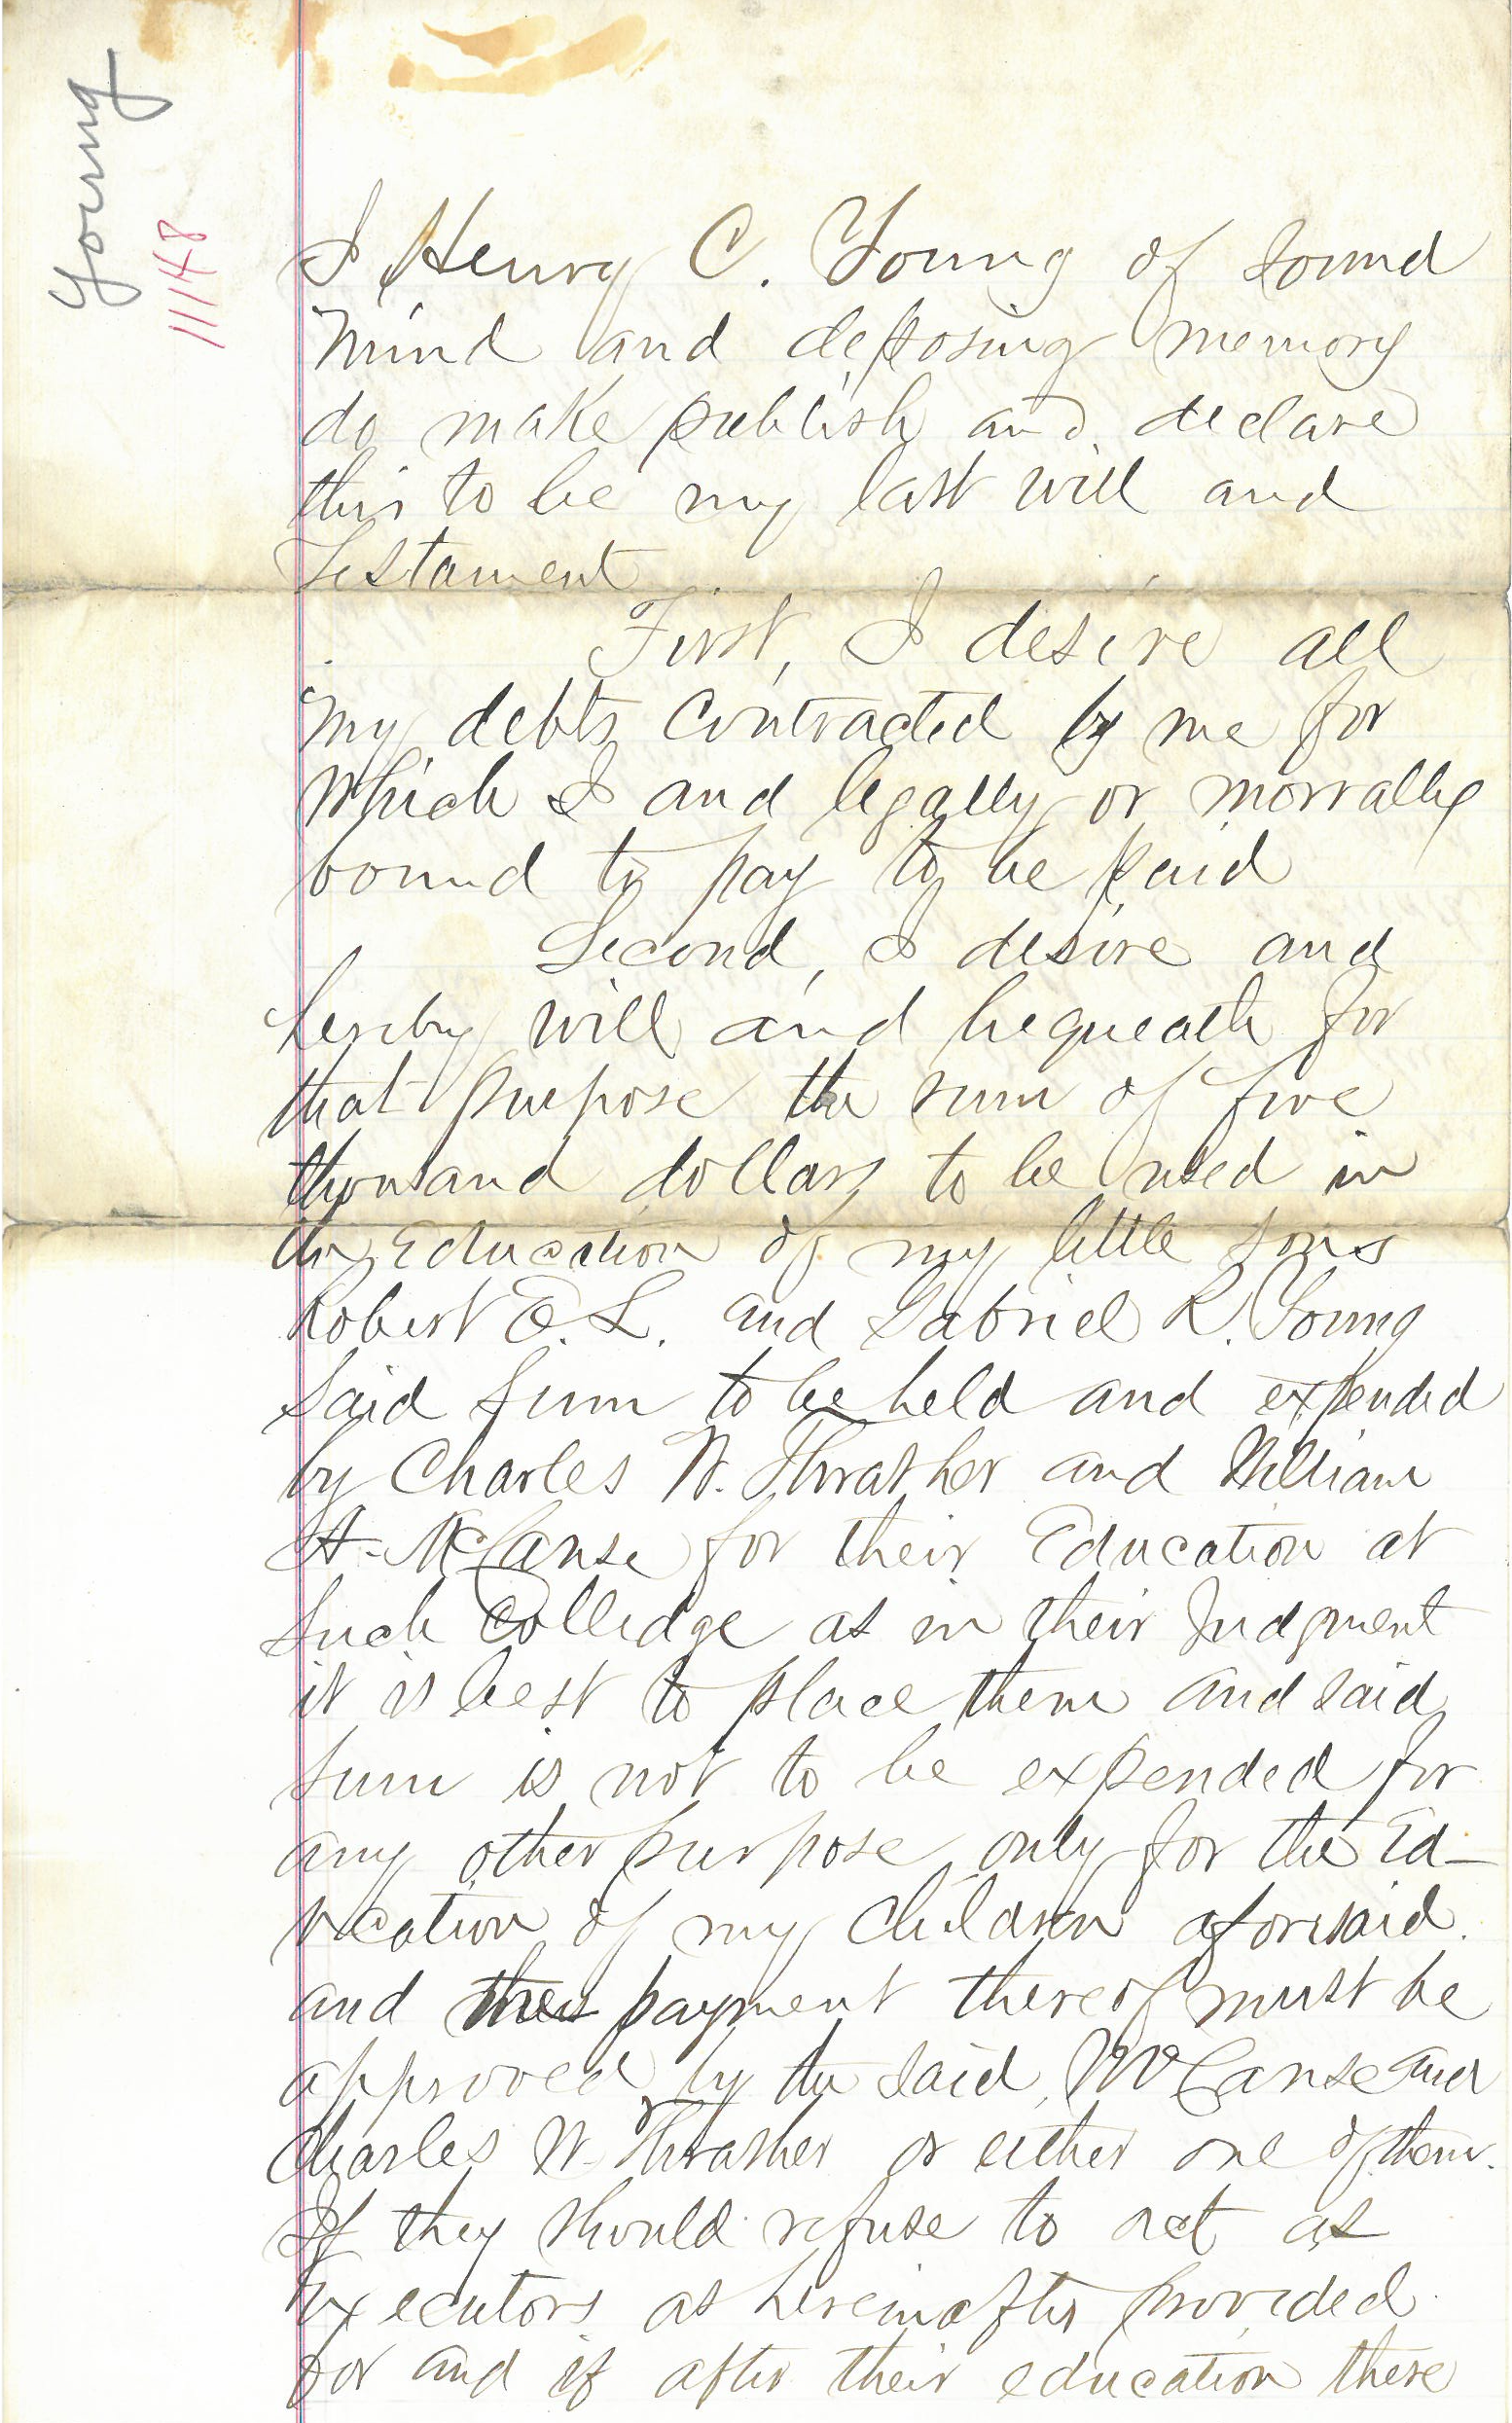 Young
11148
I Henry C. Young of sound
mind and deposing memory
do make publish and declare
this to be my last will and
Testament
First, I desire all
my debts contracted by me for
which I and legally or morrally
bound to pay to be paid
Second, I desire and
hereby will and bequeath for
that purpose the sum of five
thousand dollars to be used in
the Education of my little sons
Robert E. L. and Gabriel R. Young
said sum to be held and expended
by Charles W. Thrather and William
A. McCanse for their Education at
such Colledge as in their Judgment
it is best to place them and said
sum is not to be expended for
any other purpose only for the Ed-
ucation of my children aforesaid.
and payment thereof must be
approved by the said McCanse and
Charles W. Thrasher or either one of them.
If they should refuse to act as
Executors as hereinafter provided
for and if after their education there